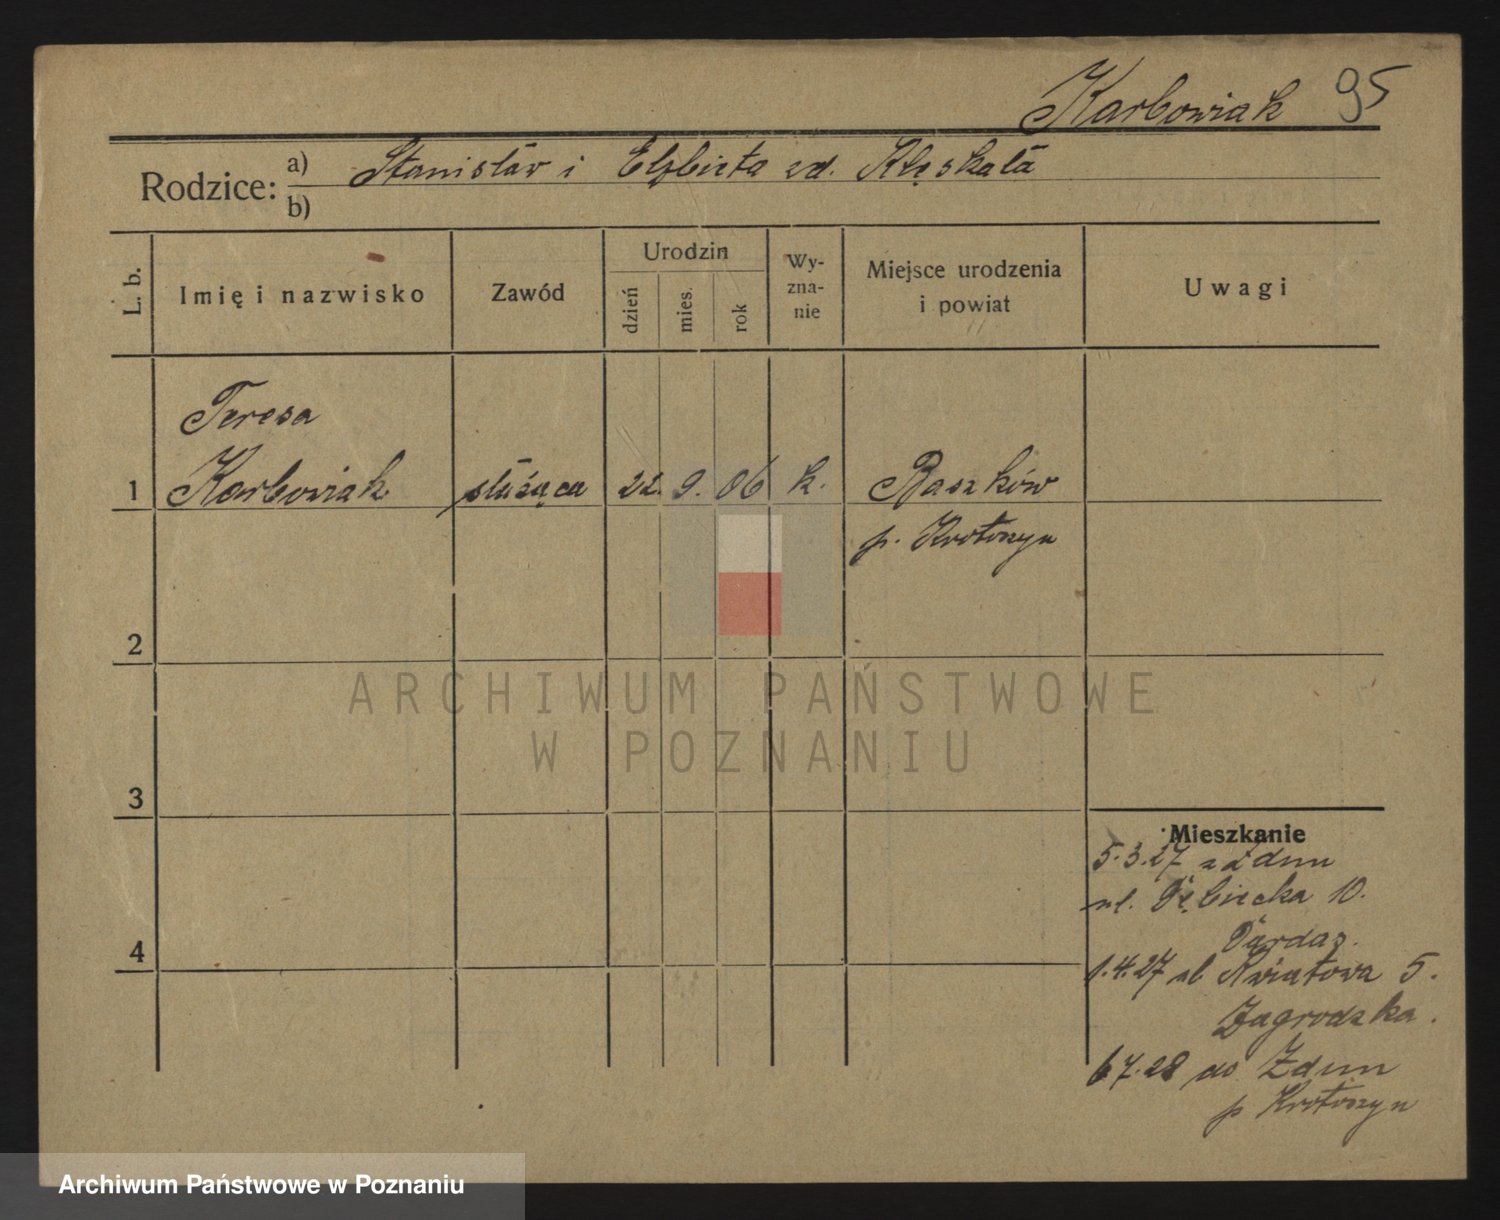 Karbowiak 95
Rodzice: a) Stanisław i Elżbieta zd. Klęskała
b)
L. b.
Imię i nazwisko
Zawód
Urodzin
dzień
mies.
rok
Wy-
zna-
nie
Miejsce urodzenia
i powiat
Uwagi
Teresa
1 Karbowiak służąca 22. 9. 06 k. Raszków
p. Krotoszyn
2
ARCHIWUM PAŃSTWOWE
W POZNANIU
3
4
Mieszkanie
5.3.27 z Zdun
ul. Dębiecka 10.
1.4.27 ul. Kwiatowa 5.
Zagrodzka.
6 7.28 do Zdun
p Krotoszyn
Archiwum Państwowe w Poznaniu